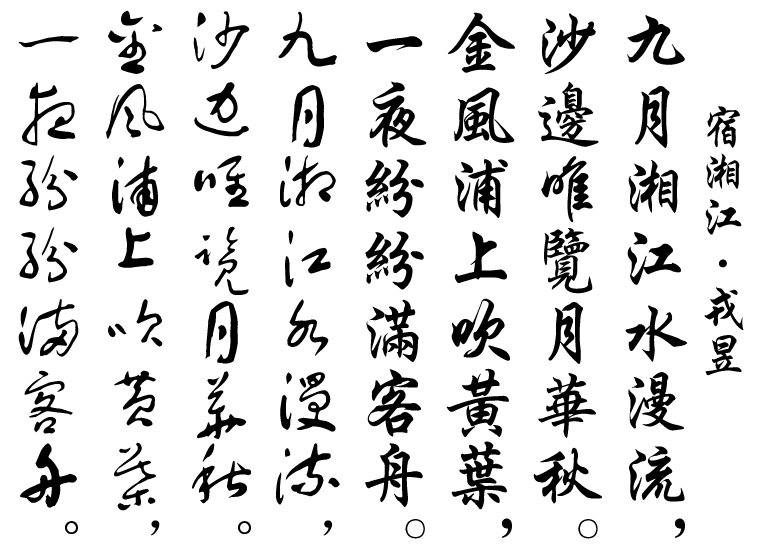 宿湘江·戎昱
九月湘江水漫流，
沙邊唯覽月華秋。
金風浦上吹黃葉，
一夜紛紛滿客舟。
九月湘江水漫流，
沙边唯览月華秋。
金风浦上吹黄葉，
一夜紛紛满客舟。